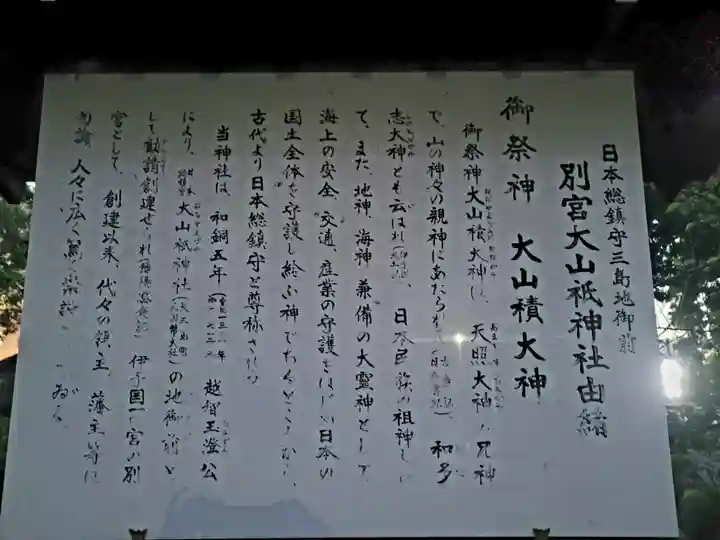 日本総鎮守三島地御前
別宮大山祇神社由緒
御祭神 大山積大神
御祭神大山積大神は、天照大神の兄神
で、山の神々の親神にあたられ(日本書紀)、和多
志大神とも云はれ、日本民族の祖神とし
て、また、地神、海神兼備の大霊神として、
海上の安全、交通、産業の守護をはじめ日本の
国土全体を守護し給ふ神であるところから、
古代より日本総鎮守と尊称され
当神社は、和銅五年 越智玉澄公
により、大山祇神社の地御前と
して勧請創建せられ 伊予国一の宮の別
宮として、創建以来、代々の領主、藩主等は
勿論、人々に広く